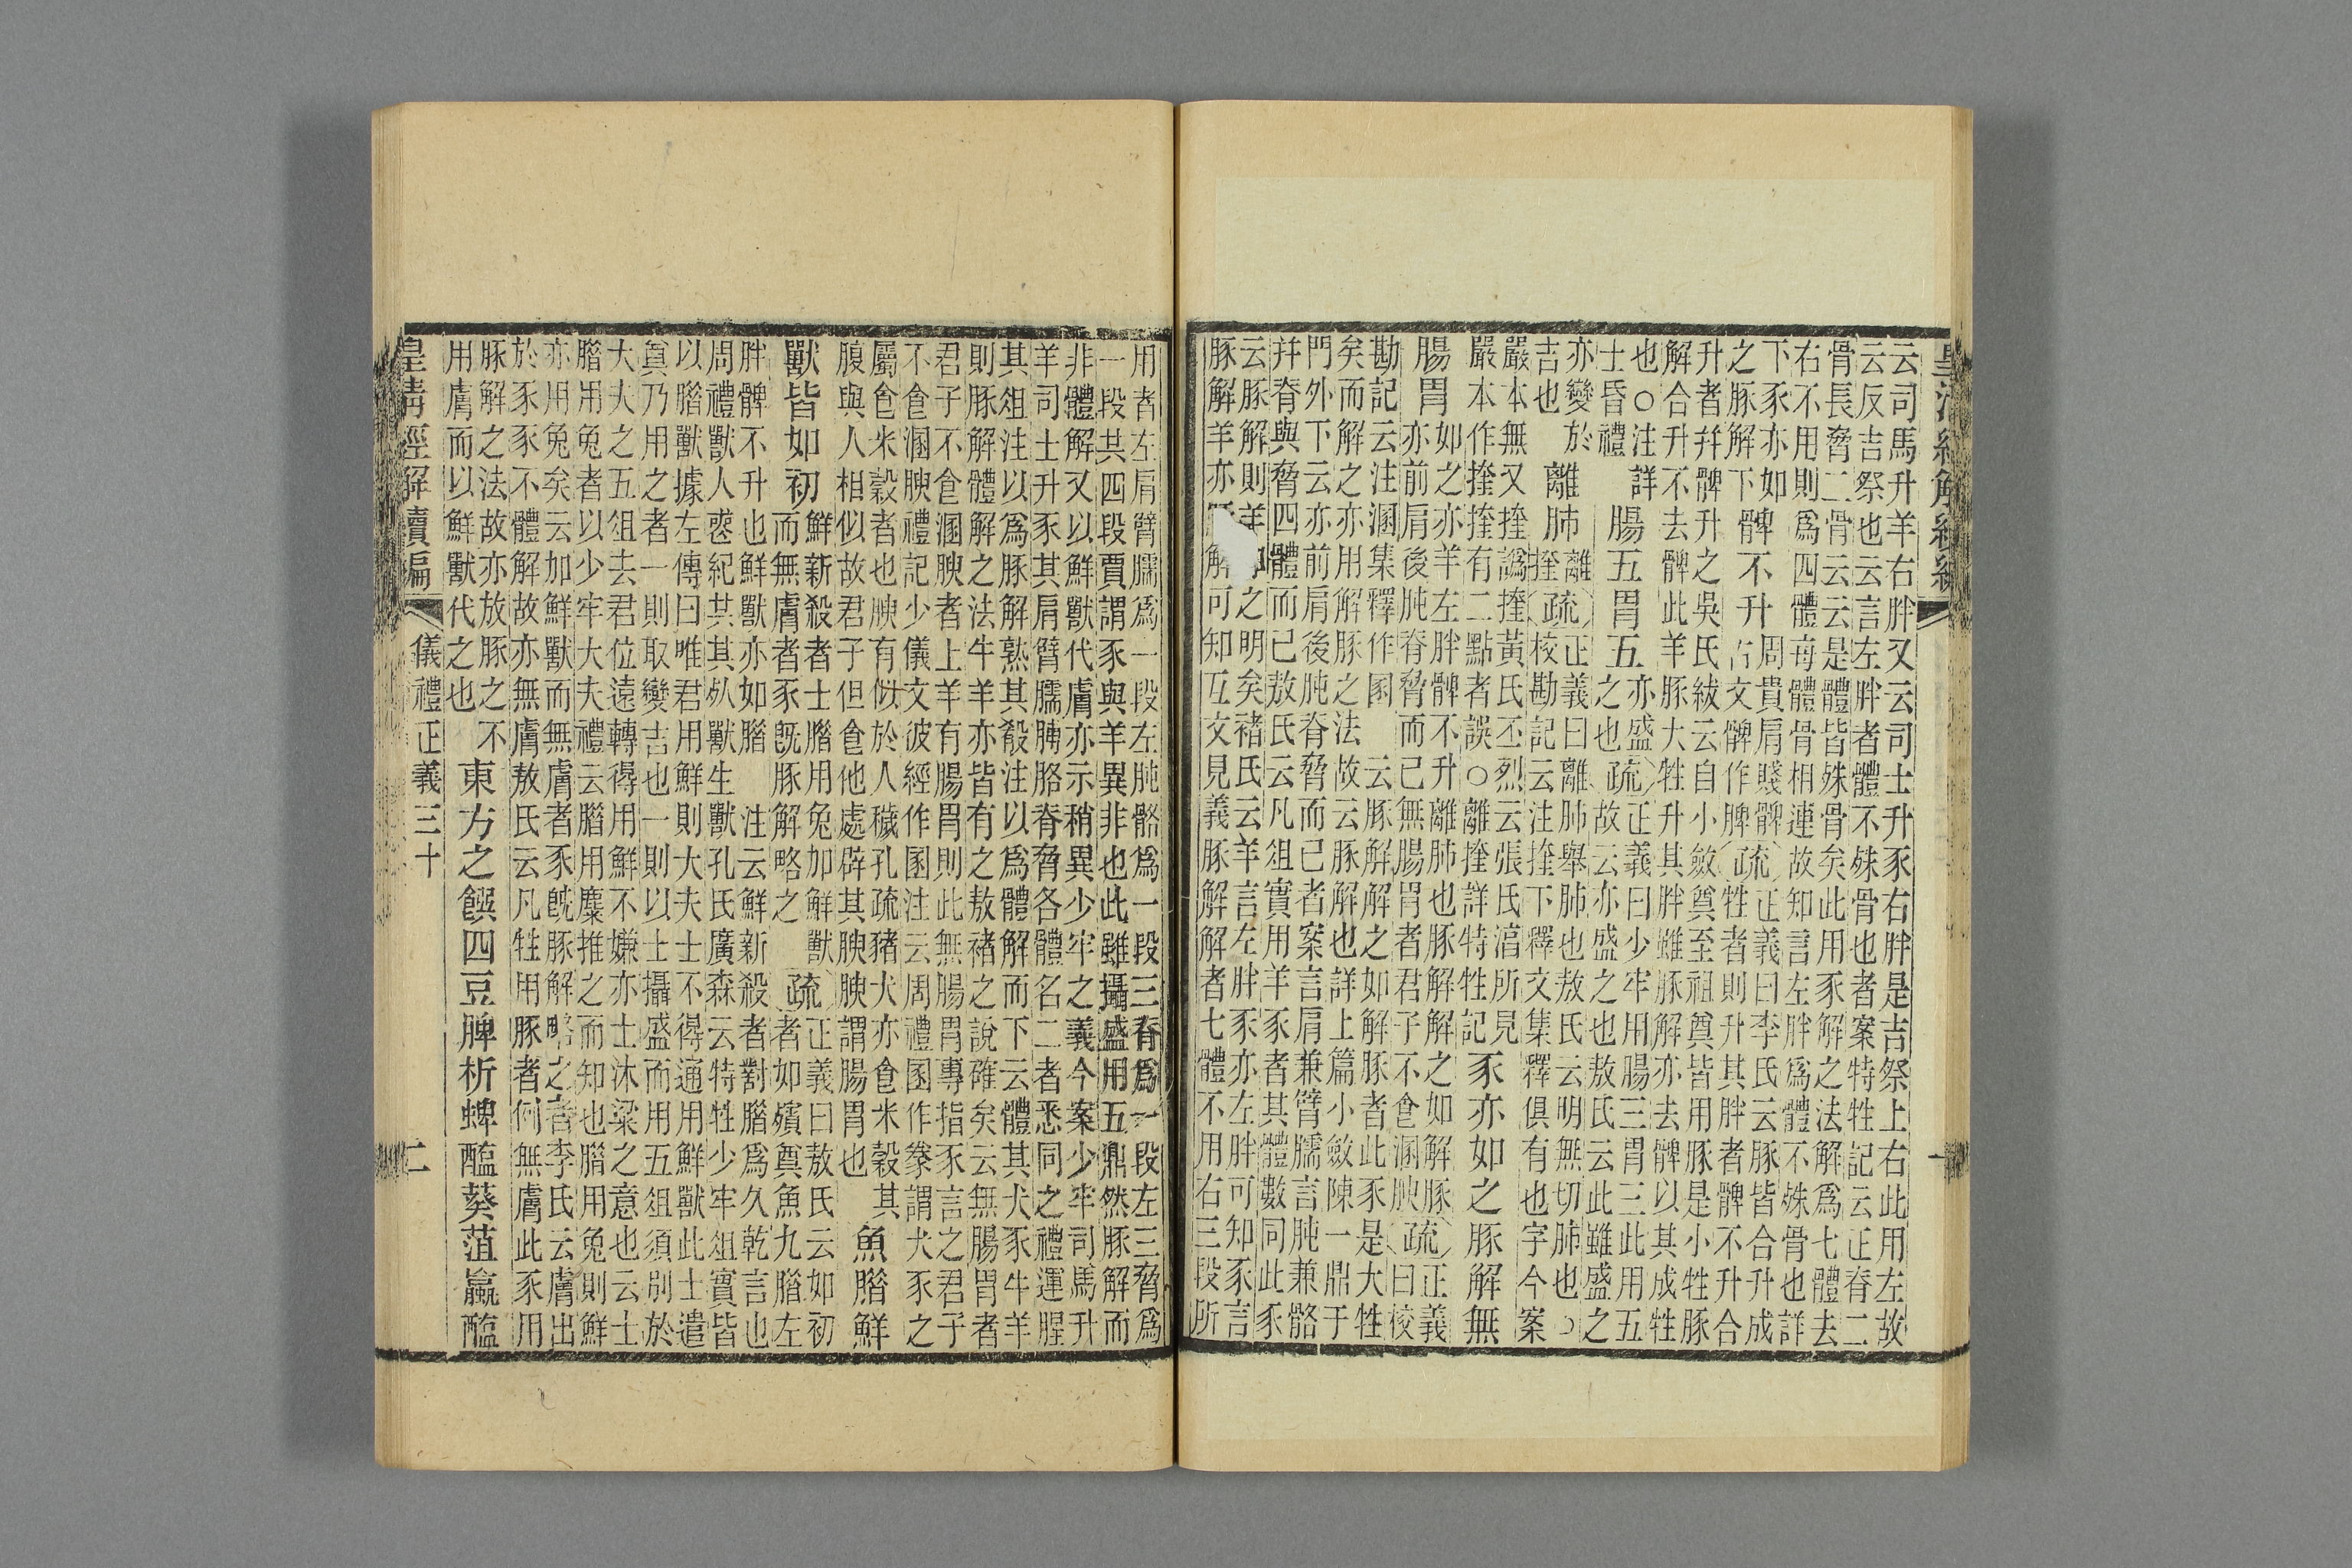 皇清經解續編
云司馬升羊右胖又云司士升豕右胖是吉祭上右此用左故
云反吉祭也云言左胖者體不殊骨也者案特牲記云正脊二
骨長脅二骨云云是體皆殊骨矣此用豕解之法解爲七體去
右不用則爲四體每體骨相連故知言左胖爲體不殊骨也詳
下豕亦如
之豚解
下髀不升
周貴肩賤髀
古文髀作脾
疏
正義曰李氏云豚皆合升成
牲者則升其胖者髀不升合
升者幷髀升之吳氏紱云自小斂奠至祖奠皆用豚是小牲豚
解合升不去髀此羊豚大牲升其胖雖豚解亦去髀以其成牲
也○注詳
士昏禮
腸五胃五
亦盛
之也
疏
正義曰少牢用腸三胃三此用五
故云亦盛之也敖氏云此雖盛之
亦變於
吉也
離肺
離
挳
疏
正義曰離肺舉肺也敖氏云明無切肺也○
校勘記云注挳下釋文集釋俱有也字今案
嚴本無又挳譌挳黃氏丕烈云張氏淳所見
嚴本作挳挳有二點者誤○離挳詳特牲記
豕亦如之豚解無
腸胃
如之亦羊左胖髀不升離肺也豚解解之如解豚
亦前肩後肫脊脅而已無腸胃者君子不食溷腴
疏
正義
曰校
勘記云注溷集釋作圂 云豚解解之如解豚者此豕是大牲
矣而解之亦用解豚之法故云豚解也詳上篇小斂陳一鼎于
門外下云亦前肩後肫脊脅而已者案言肩兼臂臑言肫兼骼
幷脊與脅四體而已敖氏云凡俎實用羊豕者其體數同此豕
云豚解則羊之明矣褚氏云羊言左胖豕亦左胖可知豕言
豚解羊亦解可知互文見義豚解解者七體不用右三段所
用者左肩臂臑爲一段左肫骼爲一段三脊爲一段左三脅爲
一段共四段賈謂豕與羊異非也此雖攝盛用五鼎然豚解而
非體解又以鮮獸代膚亦示稍異少牢之義今案少牢司馬升
羊司士升豕其肩臂臑膊胳脊脅各體名二者悉同之禮運腥
其俎注以爲豚解熟其殽注以爲體解而下云體其犬豕牛羊
則豚解體解之法牛羊亦皆有之敖褚之說確矣云無腸胃者
君子不食溷腴者上羊有腸胃則此無腸胃專指豕言之君子
不食溷腴禮記少儀文彼經作圂注云周禮圂作豢謂犬豕之
屬食米穀者也腴有似於人穢孔疏豬犬亦食米穀其
腹與人相似故君子但食他處辟其腴腴謂腸胃也
魚腊鮮
獸皆如初
鮮新殺者士腊用兔加鮮獸
而無膚者豕旣豚解略之
疏
正義曰敖氏云如初
者如殯奠魚九腊左
胖髀不升也鮮獸亦如腊 注云鮮新殺者對腊爲久乾言也
周禮獸人共其獸生獸孔氏廣森云特牲少牢俎實皆
以腊獸據左傳曰唯君用鮮則大夫士不得通用鮮獸此士遣
奠乃用之者一則取變吉也一則以士攝盛而用五俎須別於
大夫之五俎去君位遠轉得用鮮不嫌亦士沐粱之意也云士
腊用兔者以少牢大夫禮云腊用麋推之而知也腊用兔則鮮
亦用兔矣云加鮮獸而無膚者豕旣豚解略之者李氏云膚出
於豕豕不體解故亦無膚敖氏云凡牲用豚者例無膚此豕用
豚解之法故亦放豚之不
用膚而以鮮獸代之也
東方之饌四豆脾析蜱醢葵菹蠃醢
皇清經解續編
儀禮正義三十
二